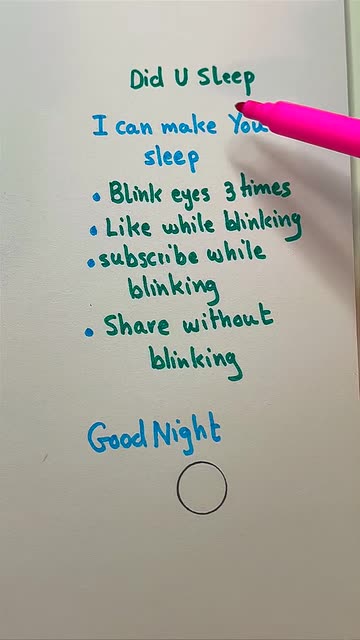 Did U Sleep
I can make You
sleep
• Blink eyes 3 times
• Like while blinking
• subscribe while
blinking
• Share without
blinking
Good Night